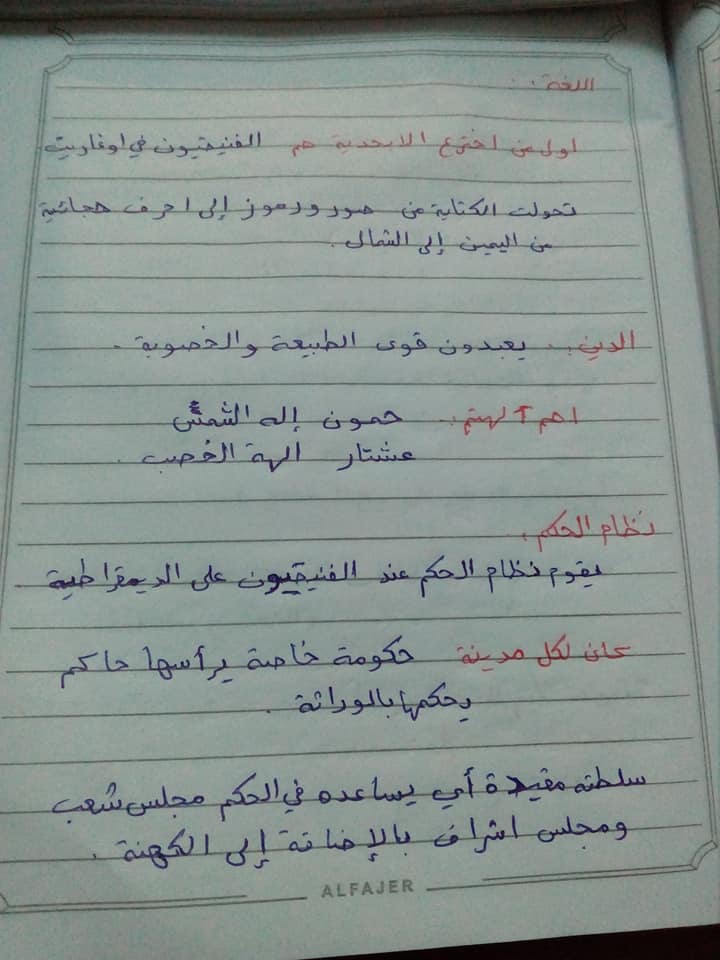 اللغة :
اول من اخترع الابجدية هم الفنيقيون في اوغاريت
تحولت الكتابة من صور ورموز إلى احرف هجائية
من اليمين إلى الشمال .
الدين : يعبدون قوى الطبيعة والخصوبة .
اهم آلهتهم : حمون إله الشمس
عشتار الهة الخصب .
نظام الحكم :
يقوم نظام الحكم عند الفنيقيون على الديمقراطية
كان لكل مدينة حكومة خاصة يرأسها حاكم
يحكمها بالوراثة .
سلطته مقيدة أي يساعده في الحكم مجلس شعب
ومجلس اشراف بالإضافة إلى الكهنة .
ALFAJER